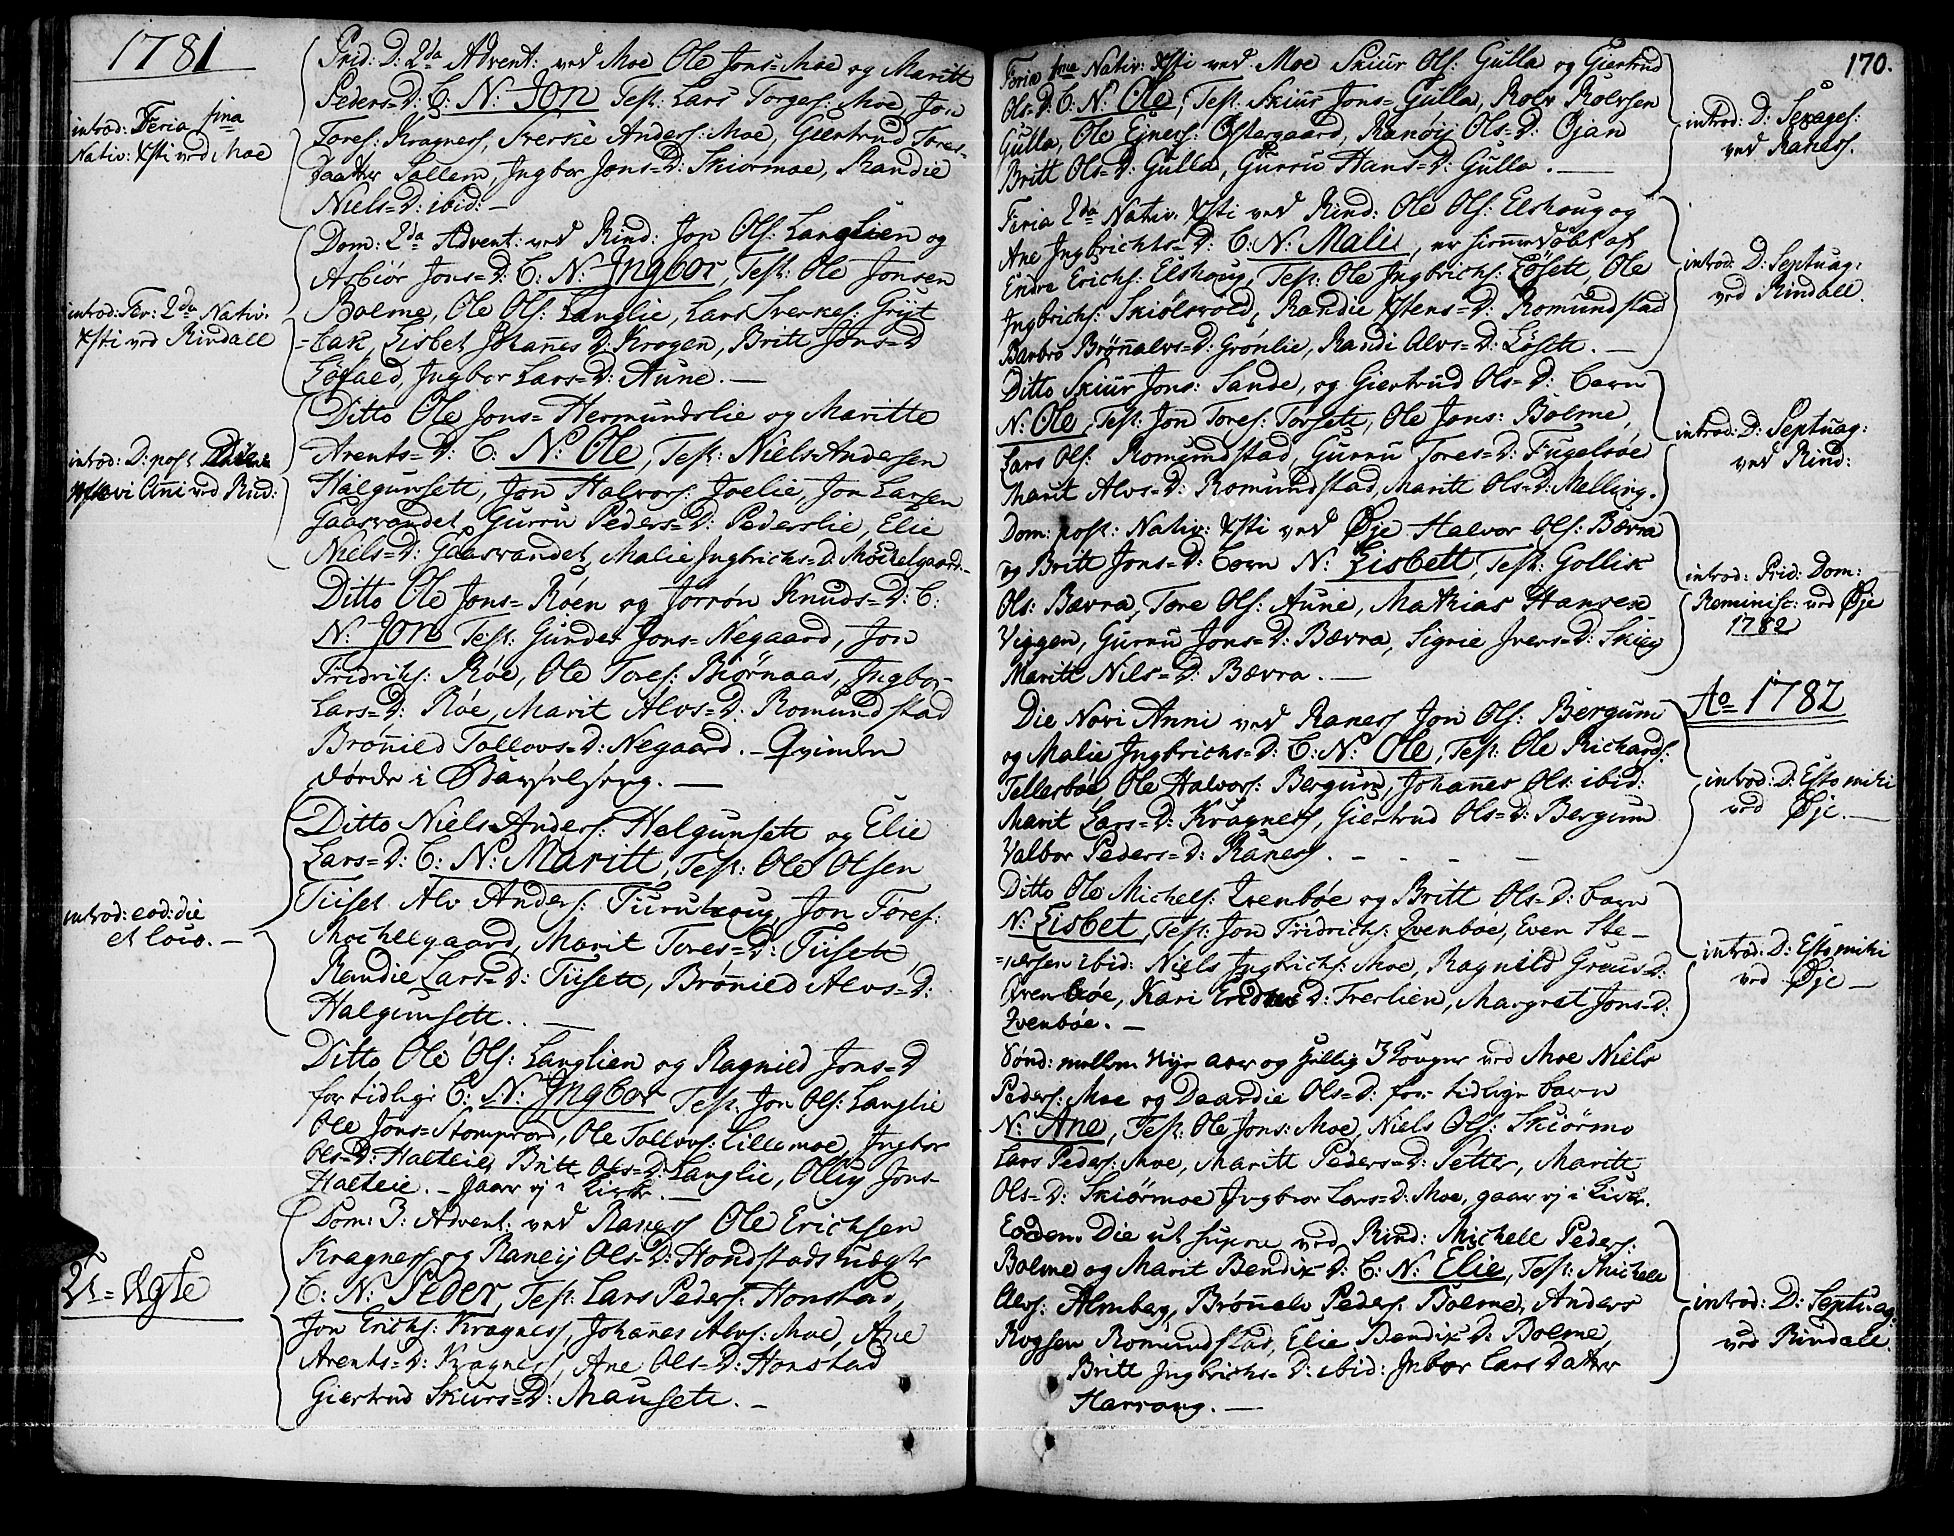 1781
Prid: D: 2da Advent: ved Moe Ole Jons=Moe og Maritt
Peders=D: C: N: Jon Test: Lars Torgers: Moe, Jon
introd: Feria 1ma
Nativ: Xsti ved Moe
Tores: Kragness, Sverke Anders: Moe, Giertrud Tores=
Daatter Sollem, Ingbor Jons=D: Skiormoe, Randie
Niels=D: ibid: —
Dom: 2da Advent: ved Rind: Jon Ols: Langlien og
Asbiör Jons=D: C: N: Ingbor, Test: Ole Jonsen
introd: Fer: 2da Nativ:
Xsti ved Rindall
Bolme, Ole Ols: Langlie, Lars Sverkes: Gryt
=bak, Lisbet Johannes D: Krogen, Britt Jons=D
Löfald, Ingbor Lars=D: Aune. —
Ditto Ole Jons= Hermundslie og Maritte
Arents=D: C: N: Ole, Test: Niels Andersen
introd: D: post
Novi Anni ved Rind:
Halgunsett, Jon Halvors: Joelie, Jon Larsen
Gaasvandet, Gurru Peders=D: Pederslie, Elie
Niels=D: Gaasvandet, Malie Ingbrichs=D: Mochelgaard. —
Ditto Ole Jons= Röen og Jorrön Knuds=D: C:
N: Jon Test: Gunder Jons= Negaard, Jon
Fridrichs: Röe, Ole Tores: Biörnaas, Ingbor
Lars=D: Röe, Marit Alvs=D: Romundstad
Brönild Tollovs=D: Negaard. — Qvinden
døede i Barselseng. —
Ditto Niels Anders: Halgunsett og Elie
Lars=D: C: N: Maritt, Test: Ole Olsen
introd: eod: die
et loco. —
Tiiset Alv Anders: Furuhoug, Jon Töres:
Mochelgaard, Marit Tores=D: Tiisett,
Randie Lars=D: Tiisett, Brönild Alvs=D:
Halgunsett. —
Ditto Ole Ols: Langlien og Ragnild Jons=D
for tidlig C: N: Ingbor Test: Jon Ols: Langlie
Ole Jons= Stomprød, Ole Tollovs: Lillemoe, Ingbor
Ols=D: Halteie, Britt Ols=D: Langlie, Olluy Jons=
Halteie. — gaar ej i Kirke. —
Dom: 3: Advent: ved Raness Ole Erichsen
Kragness og Raneij Ols=D: Hondstads uægte
U=Ægte
C: N: Peder, Test: Lars Peders: Honstad,
Jon Erichs: Kragness, Johanes Alvs: Moe, Ane
Arents=D: Kragness, Ane Ols=D: Honstad
Giertrud Skiurs=D: Mausett. —
170.
Feria 1ma Nativ: Xsti ved Moe Skiur Ols: Gulla og Giertrud
Ols=D: C: N: Ole, Test: Skiur Jons= Gulla, Rolv Rolvsen
Gulla, Ole Ejners: Östergaard, Ranöij Ols=D: Öjan
Britt Ols=D: Gulla, Gurru Hans=D: Gulla. —
introd: D: Sexages:
ved Raness.
Feria 2da Nativ: Xsti ved Rind: Ole Ols: Elshoug og
Ane Ingbrichts=D: C: N: Mali, er hiemedöbt af
Endre Erichs: Elshoug, Test: Ole Ingbrichs: Lösett, Ole
Ingbrichs: Skiölsvold, Randie Xstens=D: Romundstad
Barbro Brönnalvs=D: Grönlie, Randi Alvs=D: Lösett. —
introd: D: Septuag:
ved Rindall.
Ditto Skiur Jons: Sande, og Giertrud Ols=D: barn
N: Ole, Test: Jon Tores: Torsett, Ole Jons: Bolme,
Lars Ols: Romundstad, Gurru Tores=D: Fugelsöe
Marit Alvs=D: Romundstad, Maritt Ols=D: Melling.
introd: D: Septuag:
ved Rind:
Dom: post: Nativ: Xsti ved Øje Halvor Ols: Bævra
og Britt Jons=D: barn N: Lisbett, Test: Gollik
Ols: Bævra, Tore Ols: Aune, Mathias Hansen
Viggen, Gurru Jons=D: Bævra, Sigrie Ivers=D: Skiey
Maritt Nils=D: Bævra. —
introd: Prid: Dom:
Reminisc: ved Øje
1782
Ao 1782
Die Novi Anni ved Raness Jon Ols: Bergum
og Malie Ingbrichs=D: C: N: Ole, Test: Ole Richards:
Tellesböe, Ole Halvors: Bergum, Johannes Ols: ibid:
Marit Lars=D: Kragness, Giertrud Ols=D: Bergum
Valbor Peders=D: Raness. —
introd: D: Esto mihi
ved Øje. —
Ditto Ole Michels: Qvenböe og Britt Ols=D: barn
N: Lisbet, Test: Jon Fridrichs: Qvenböe, Even Ste=
=nersen ibid: Niels Ingbrichs: Moe, Ragnild Greus=D:
Qvenböe, Kari D: Trerlien, Margret Jons=D:
Qvenböe. —
introd: D: Esto mihi
ved Øje —
Sönd: mellem Nyt aar og hellig 3 Konger ved Moe Niels
Peders: Moe og Daardie Ols=D: for tidlig barn
N: Ane, Test: Ole Jons: Moe, Niels Ols: Skiörmo
Lars Peders: Moe, Maritt Peders=D: Setter, Maritt
Ols=D: Skiörmoe Ingbor Lars=D: Moe, gaar ej i Kirke.
Eodem Die ut supra ved Rind: Michell Peders:
Bolme og Marit Bendix D: C: N: Elie, Test: Michell
Alvs: Almberg, Brönnelv Peders: Bolme, Anders
Rogsen Romundstad, Elie Bendix D: Bolme,
Britt Ingbrichs=D: ibid: Inbor Lars Datter
Harrang. —
introd: D: Septuag:
ved Rindall.